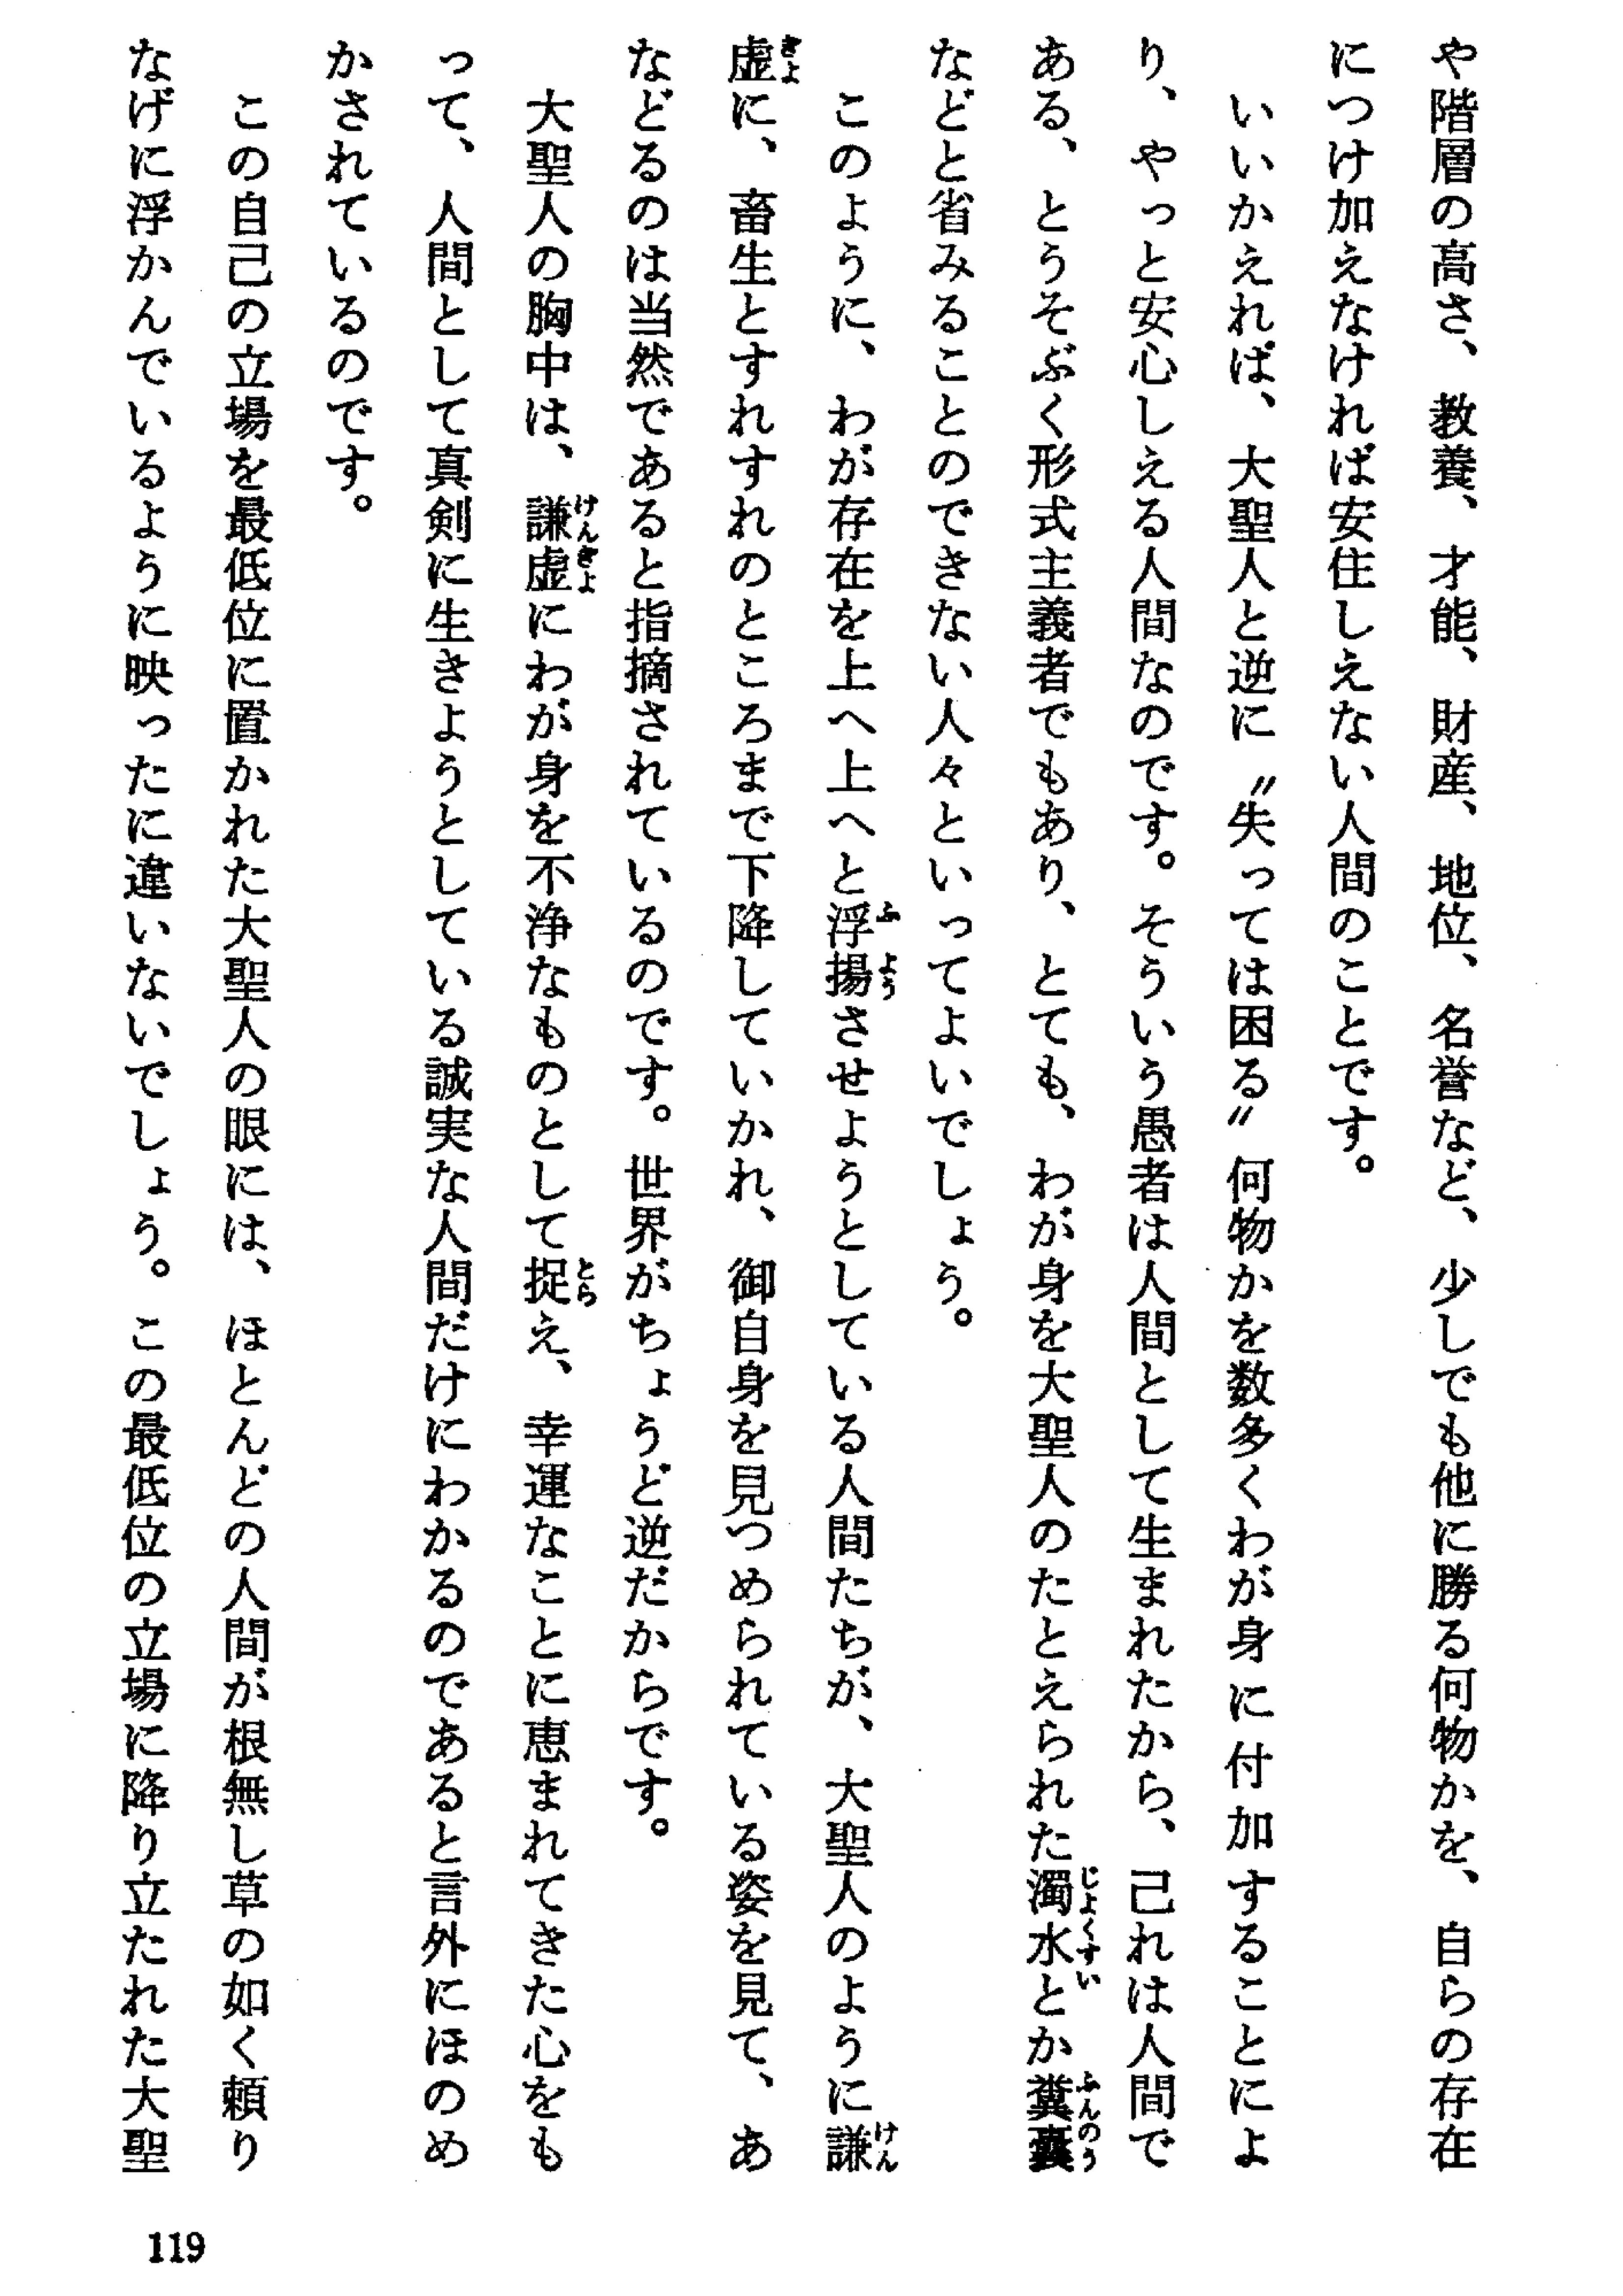 や階層の高さ、教養、才能、財産、地位、名誉など、少しでも他に勝る何物かを、自らの存在
につけ加えなければ安住しえない人間のことです。
　いいかえれば、大聖人と逆に〝失っては困る〟何物かを数多くわが身に付加することによ
り、やっと安心しえる人間なのです。そういう愚者は人間として生まれたから、己れは人間で
ある、とうそぶく形式主義者でもあり、とても、わが身を大聖人のたとえられた濁水とか糞嚢
などと省みることのできない人々といってよいでしょう。
　このように、わが存在を上へ上へと浮揚させようとしている人間たちが、大聖人のように謙
虚に、畜生とすれすれのところまで下降していかれ、御自身を見つめられている姿を見て、あ
などるのは当然であると指摘されているのです。世界がちょうど逆だからです。
　大聖人の胸中は、謙虚にわが身を不浄なものとして捉え、幸運なことに恵まれてきた心をも
って、人間として真剣に生きようとしている誠実な人間だけにわかるのであると言外にほのめ
かされているのです。
　この自己の立場を最低位に置かれた大聖人の眼には、ほとんどの人間が根無し草の如く頼り
なげに浮かんでいるように映ったに違いないでしょう。この最低位の立場に降り立たれた大聖
119